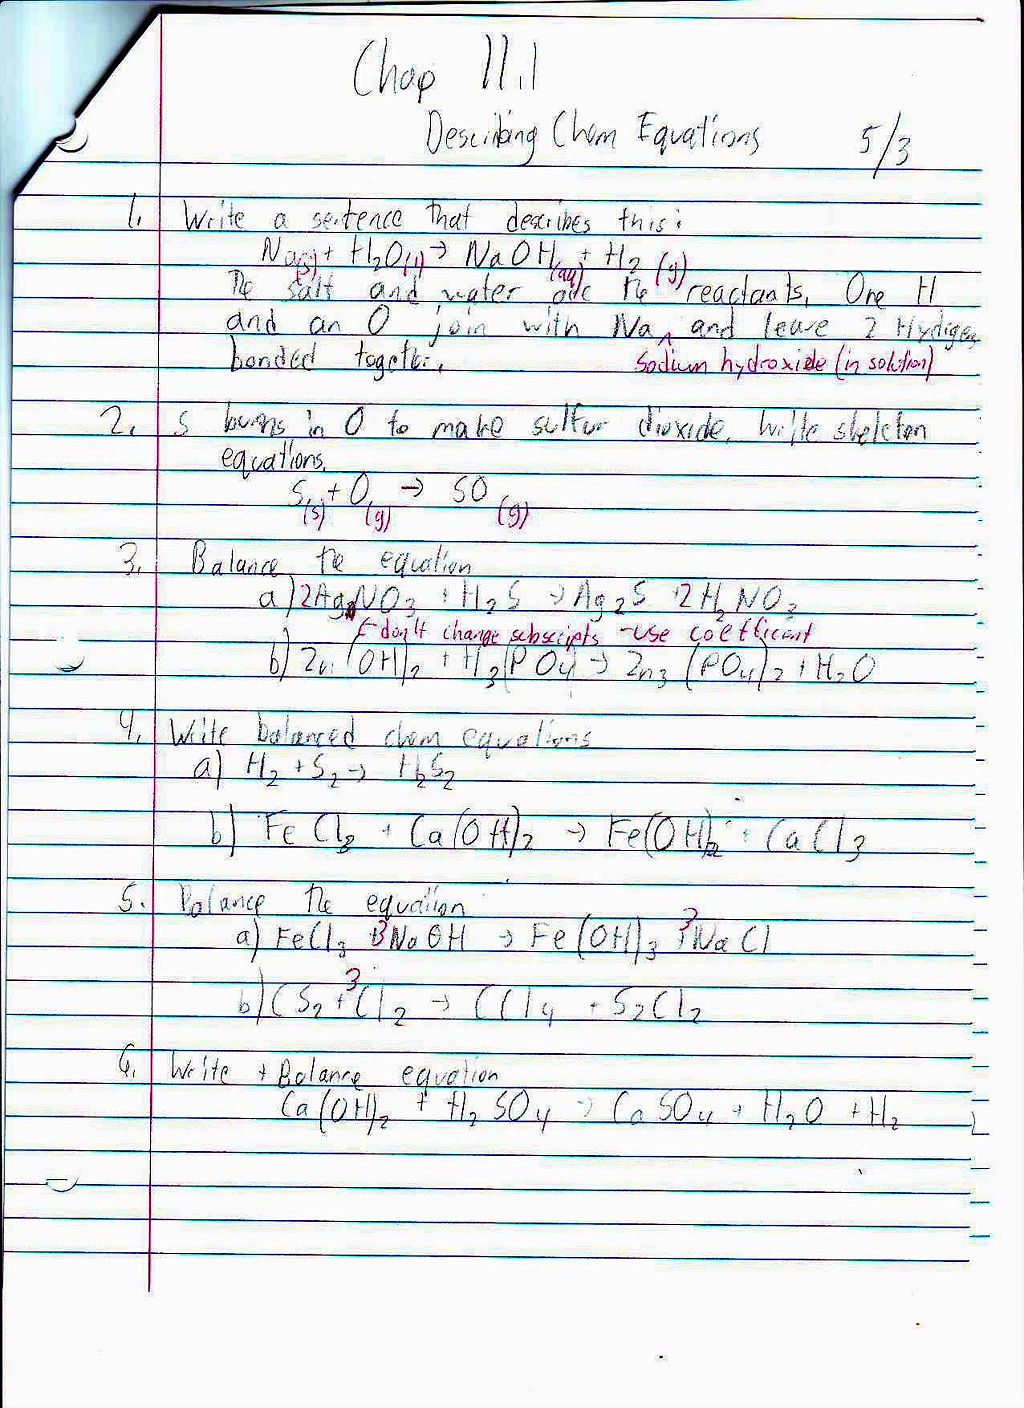 Chap 11.1
Describing Chem Equations 5/3
1. Write a sentence that describes this:
Na(s) + H2O(l) → NaOH(aq) + H2 (g)
The salt and water are the reactants. One H
and an O join with Na ^ and leave 2 Hydrogen
bonded together. Sodium hydroxide (in solution)
2. S burns in O to make sulfur dioxide. Write skeleton
equations.
S(s) + O(g) → SO (g)
3. Balance the equation
a) 2AgNO3 + H2S → Ag2S 2H2NO3
don't change subscripts - use coefficient
b) Zn (OH)2 + H3(PO4) → Zn3 (PO4)2 + H2O
4. Write balanced chem equations
a) H2 + S2 → H2S2
b) FeCl3 + Ca(OH)2 → Fe(OH)2 + CaCl3
5. Balance the equation
a) FeCl3 + 3NaOH → Fe(OH)3 3NaCl
b) CS2 + 3Cl2 → CCl4 + S2Cl2
6. Write + Balance equation
Ca(OH)2 + H2SO4 → CaSO4 + H2O + H2